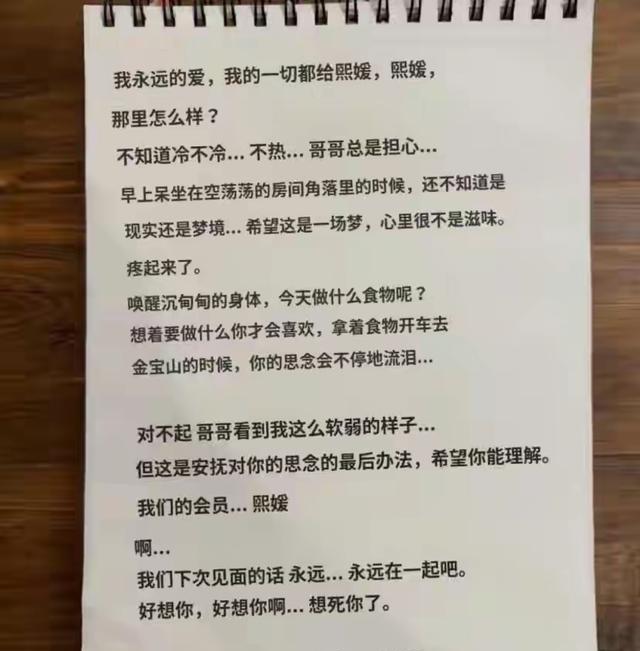 我永远的爱，我的一切都给熙媛，熙媛，
那里怎么样？
不知道冷不冷... 不热... 哥哥总是担心...
早上呆坐在空荡荡的房间角落里的时候，还不知道是
现实还是梦境... 希望这是一场梦，心里很不是滋味。
疼起来了。
唤醒沉甸甸的身体，今天做什么食物呢？
想着要做什么你才会喜欢，拿着食物开车去
金宝山的时候，你的思念会不停地流泪...
对不起 哥哥看到我这么软弱的样子...
但这是安抚对你的思念的最后办法，希望你能理解。
我们的会员... 熙媛
啊...
我们下次见面的话 永远... 永远在一起吧。
好想你，好想你啊... 想死你了。